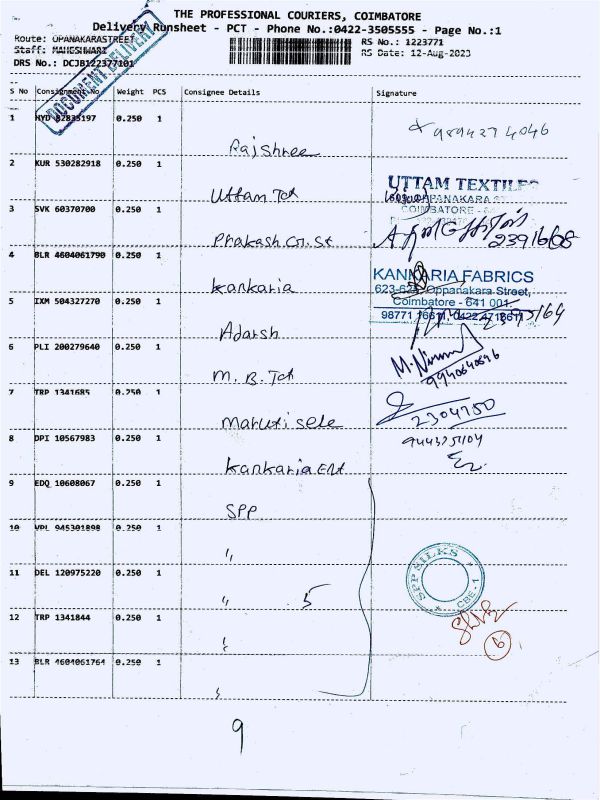 THE PROFESSIONAL COURIERS, COIMBATORE
Delivery Runsheet - PCT - Phone No.:0422-3505555 - Page No.:1
Route: OPANAKARASTREET
RS No.: 1223771
Staff: MAHESHWARI
RS Date: 12-Aug-2023
DRS No.: DCJB122377101
DOCUMENT DELIVERY
S No Consignment No Weight PCS Consignee Details Signature
1 HYD 82835197 0.250 1 Rajshree 9894274046
2 KUR 530282918 0.250 1 Uttam Tex
UTTAM TEXTILES
OPPANAKARA ST
COIMBATORE
3 SVK 60370700 0.250 1 Prakash Co. St 2391608
4 BLR 4604061790 0.250 1 Kankaria
KANKARIA FABRICS
623-625, Oppanakara Street,
Coimbatore - 641 001.
5 IXM 504327270 0.250 1 Adarsh
6 PLI 200279640 0.250 1 M. B. Tex
9940640646
7 TRP 1341685 0.250 1 Maruti Sele 2304750
8 DPI 10567983 0.250 1 Kankaria Ent 9443751104
9 EDQ 10608067 0.250 1 SPP
10 VPL 945301898 0.250 1 "
11 DEL 120975220 0.250 1 " 5
SPP SILKS
CBE - 1
12 TRP 1341844 0.250 1 "
6
13 BLR 4604061764 0.250 1 "
9